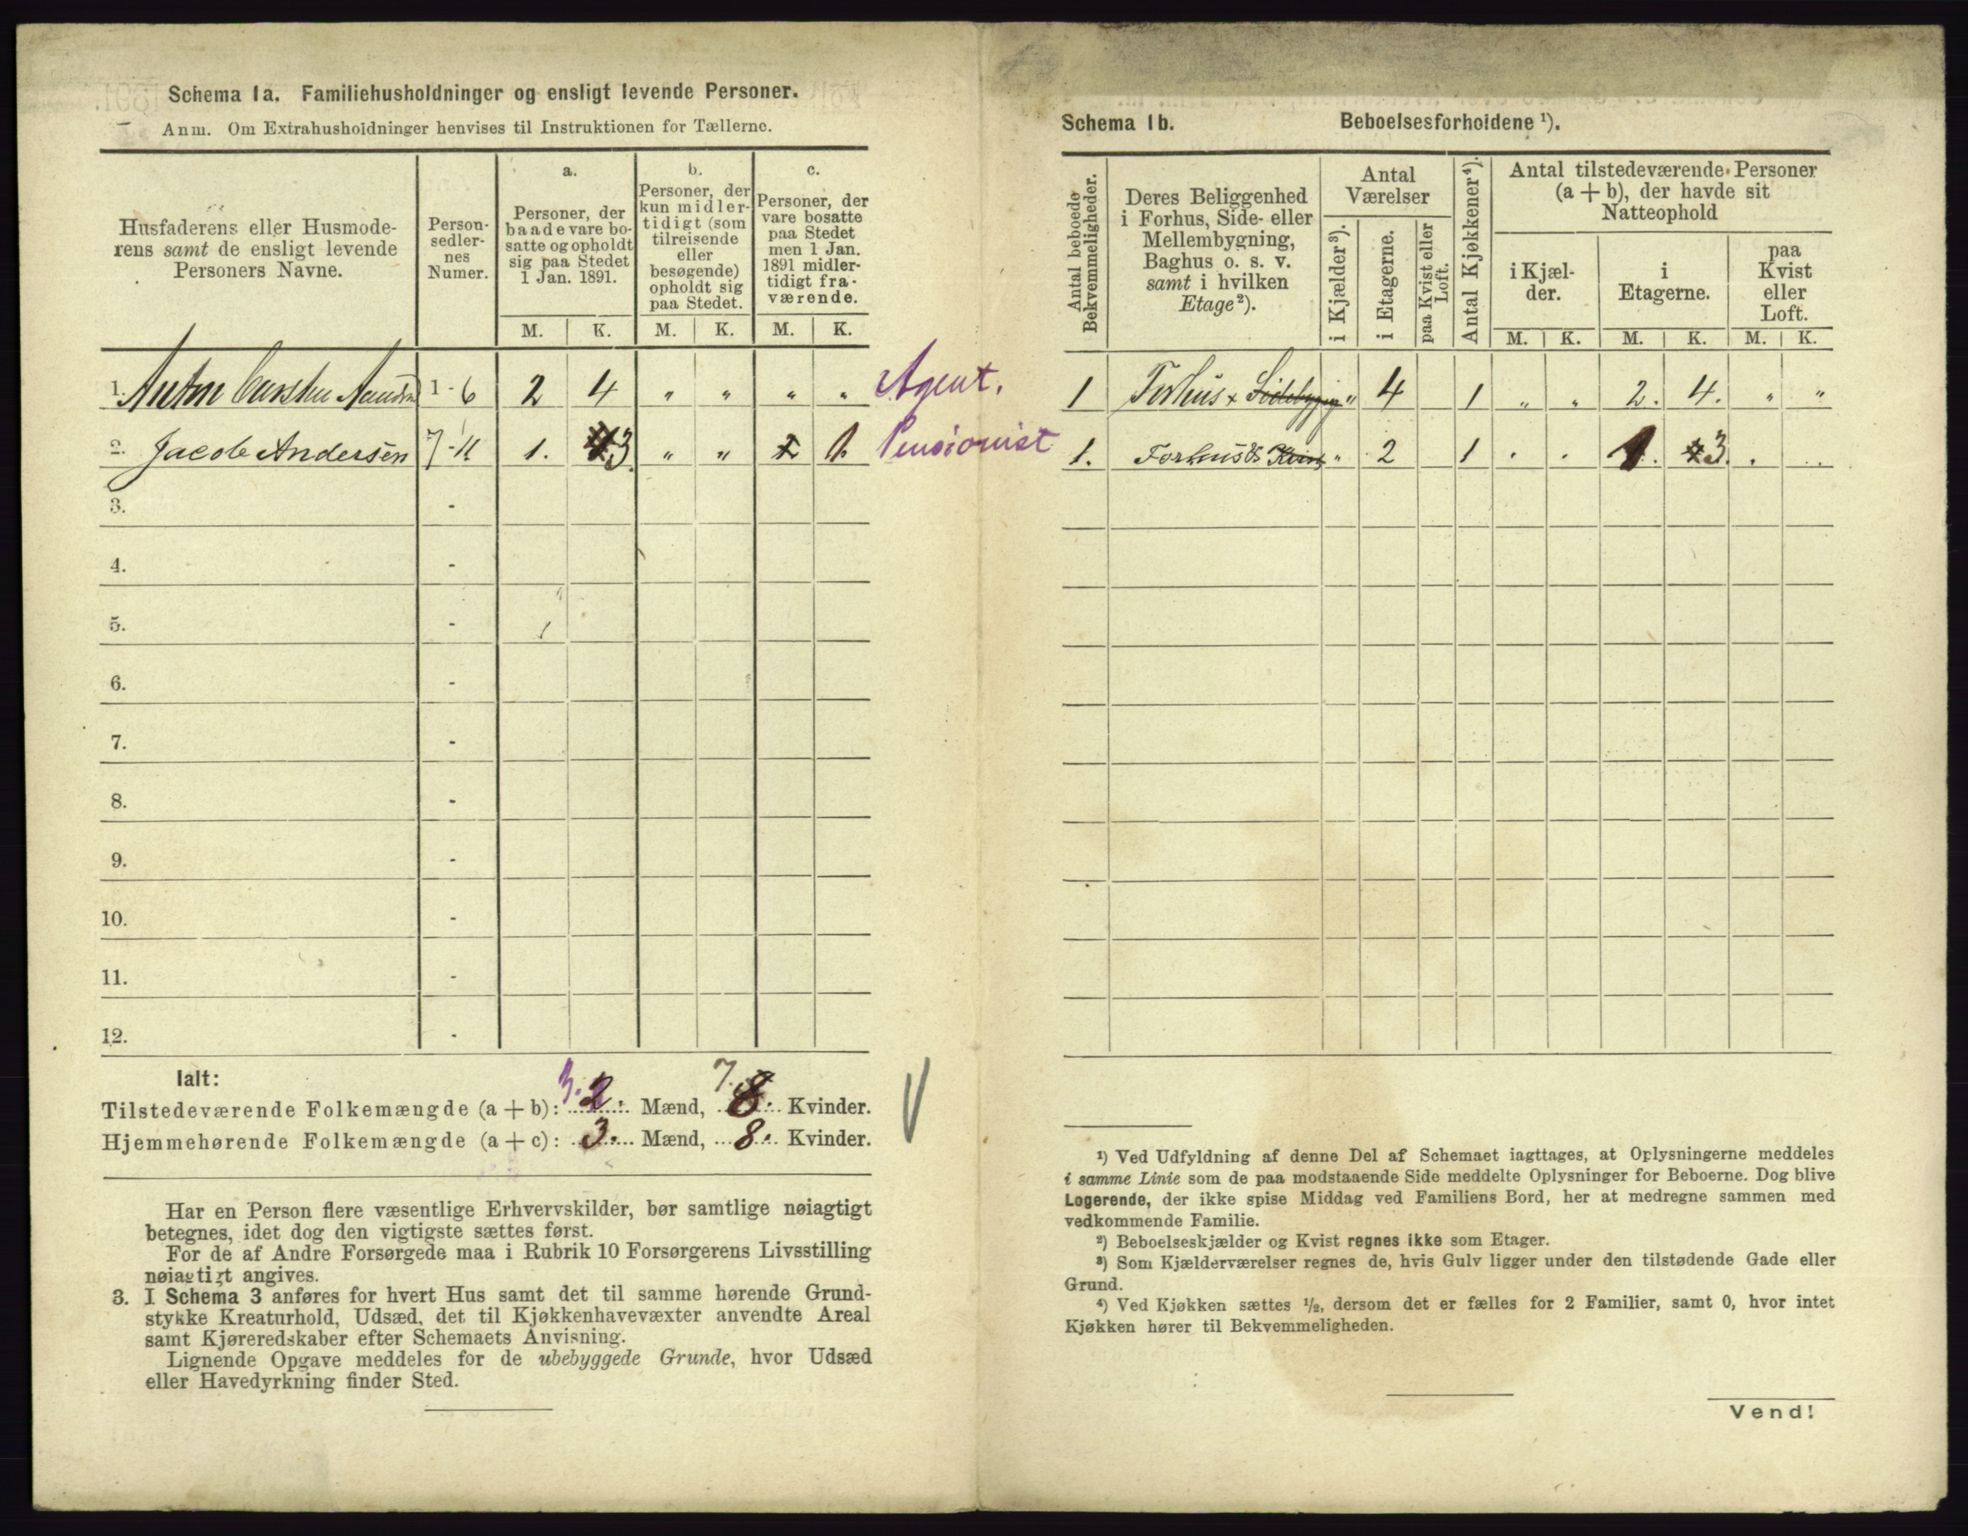 Schema 1a. Familiehusholdninger og ensligt levende Personer.
Anm. Om Extrahusholdninger henvises til Instruktionen for Tællerne.
Husfaderens eller Husmoderens samt de ensligt levende Personers Navne.
Personsedlernes Numer.
a. Personer, der baade vare bosatte og opholdt sig paa Stedet 1 Jan. 1891.
b. Personer, der kun midlertidigt (som tilreisende eller besøgende) opholdt sig paa Stedet.
c. Personer, der vare bosatte paa Stedet men 1 Jan. 1891 midlertidigt fraværende.
M. K. M. K. M. K.
1. Anton Carsten 1-6 2 4 " " " " Agent.
2. Jacob Andersen 7-11 1. 4 3 " " 1. Pensionist
3. -
4. -
5. -
6. -
7. -
8. -
9. -
10. -
11. -
12. -
Ialt:
3. 7.
Tilstedeværende Folkemængde (a + b): 2. Mænd, 8. Kvinder.
Hjemmehørende Folkemængde (a + c): 3. Mænd, 8. Kvinder.
Har en Person flere væsentlige Erhvervskilder, bør samtlige nøiagtigt
betegnes, idet dog den vigtigste sættes først.
For de af Andre Forsørgede maa i Rubrik 10 Forsørgerens Livsstilling
nøiagtigt angives.
3. I Schema 3 anføres for hvert Hus samt det til samme hørende Grund-
stykke Kreaturhold, Udsæd, det til Kjøkkenhavevæxter anvendte Areal
samt Kjøreredskaber efter Schemaets Anvisning.
Lignende Opgave meddeles for de ubebyggede Grunde, hvor Udsæd
eller Havedyrkning finder Sted.
Schema 1b. Beboelsesforholdene ¹).
Antal beboede Bekvemmeligheder.
Deres Beliggenhed i Forhus, Side- eller Mellembygning, Baghus o. s. v. samt i hvilken Etage ²).
Antal Værelser
i Kjælder ³).
i Etagerne.
paa Kvist eller Loft.
Antal Kjøkkener ⁴).
Antal tilstedeværende Personer (a + b), der havde sit Natteophold
i Kjælder.
i Etagerne.
paa Kvist eller Loft.
M. K. M. K. M. K.
1 Forhus + Sidebygning " 4 1 " " 2. 4. " "
1. Forhus & Kvist " 2 1 . . 1. 4 3. . .
¹) Ved Udfyldning af denne Del af Schemaet iagttages, at Oplysningerne meddeles
i samme Linie som de paa modstaaende Side meddelte Oplysninger for Beboerne. Dog blive
Logerende, der ikke spise Middag ved Familiens Bord, her at medregne sammen med
vedkommende Familie.
²) Beboelseskjælder og Kvist regnes ikke som Etager.
³) Som Kjælderværelser regnes de, hvis Gulv ligger under den tilstødende Gade eller
Grund.
⁴) Ved Kjøkken sættes ½, dersom det er fælles for 2 Familier, samt 0, hvor intet
Kjøkken hører til Bekvemmeligheden.
Vend!